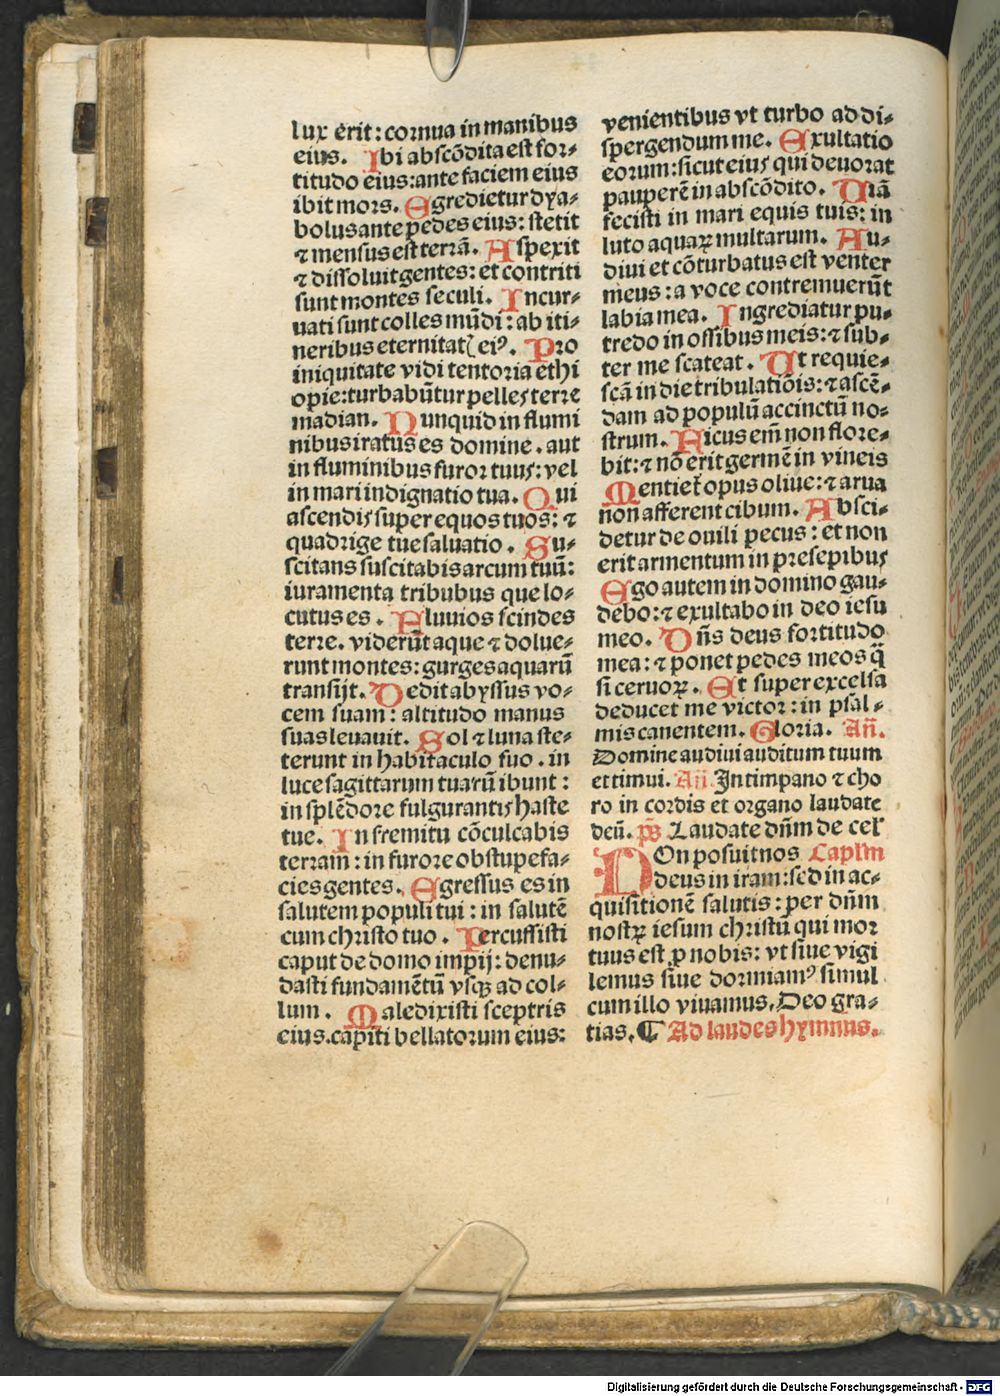 lux erit: cornua in manibus
eius. Ibi abscōdita est for⸗
titudo eius: ante faciem eius
ibit mors. Egredietur dya⸗
bolus ante pedes eius: stetit
⁊ mensus est terrā. Aspexit
⁊ dissoluit gentes: et contriti
sunt montes seculi. Incur⸗
uati sunt colles mūdi: ab iti⸗
neribus eternitatꝭ eiꝰ. Pro
iniquitate vidi tentoria ethi
opie: turbabūtur pelles terre
madian. Nunquid in flumi
nibus iratus es domine. aut
in fluminibus furor tuus: vel
in mari indignatio tua. Qui
ascendis super equos tuos: ⁊
quadrige tue saluatio. Su⸗
scitans suscitabis arcum tuū:
iuramenta tribubus que lo⸗
cutus es. Fluuios scindes
terre. viderūt aque ⁊ dolue⸗
runt montes: gurges aquarū
transijt. Dedit abyssus vo⸗
cem suam: altitudo manus
suas leuauit. Sol ⁊ luna ste⸗
terunt in habitaculo suo. in
luce sagittarum tuarū ibunt:
in splēdore fulgurantis haste
tue. In fremitu cōculcabis
terram: in furore obstupefa⸗
cies gentes. Egressus es in
salutem populi tui: in salutē
cum christo tuo. Percussisti
caput de domo impij: denu⸗
dasti fundamētū vsqꝫ ad col⸗
lum. Maledixisti sceptris
eius. capiti bellatorum eius:
venientibus vt turbo ad di⸗
spergendum me. Exultatio
eorum: sicut eius qui deuorat
pauperē in abscōdito. Uiā
fecisti in mari equis tuis: in
luto aquaꝝ multarum. Au⸗
diui et cōturbatus est venter
meus: a voce contremuerūt
labia mea. Ingrediatur pu⸗
tredo in ossibus meis: ⁊ sub⸗
ter me scateat. Ut requie⸗
scā in die tribulatiōis: ⁊ ascē⸗
dam ad populū accinctū no⸗
strum. Ficus em̄ non flore⸗
bit: ⁊ nō erit germē in vineis
Mentiet̄ opus oliue: ⁊ arua
non afferent cibum. Absci⸗
detur de ouili pecus: et non
erit armentum in presepibus
Ego autem in domino gau⸗
debo: ⁊ exultabo in deo iesu
meo. Dn̄s deus fortitudo
mea: ⁊ ponet pedes meos q̄
si ceruoꝝ. Et super excelsa
deducet me victor: in psal⸗
mis canentem. Gloria. Añ.
Domine audiui auditum tuum
et timui. Añ. In timpano ⁊ cho
ro in cordis et organo laudate
deū. p̄s Laudate dn̄m de cel'
NOn posuit nos Caplm
deus in iram: sed in ac⸗
quisitionē salutis: per dn̄m
nostꝝ iesum christū qui mor
tuus est ꝓ nobis: vt siue vigi
lemus siue dormiamꝰ simul
cum illo viuamus. Deo gra⸗
tias. ¶ Ad laudes hymnus.
Digitalisierung gefördert durch die Deutsche Forschungsgemeinschaft - DFG